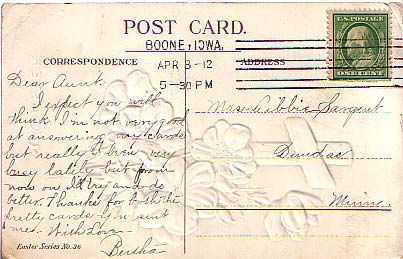 POST CARD.
BOONE, IOWA.
CORRESPONDENCE
ADDRESS
APR 3-12
5-30 PM
U.S. POSTAGE
ONE CENT
Dear Aunt.
I expect you will
think I'm not very good
at answering my cards
but really I been very
busy lately but from
now on I'll try and do
better. Thanks for both the
pretty cards you sent
me. With Love
Bertha
Mrs. Abbie Sargent
Dundas
Minn.
Easter Series No. 36